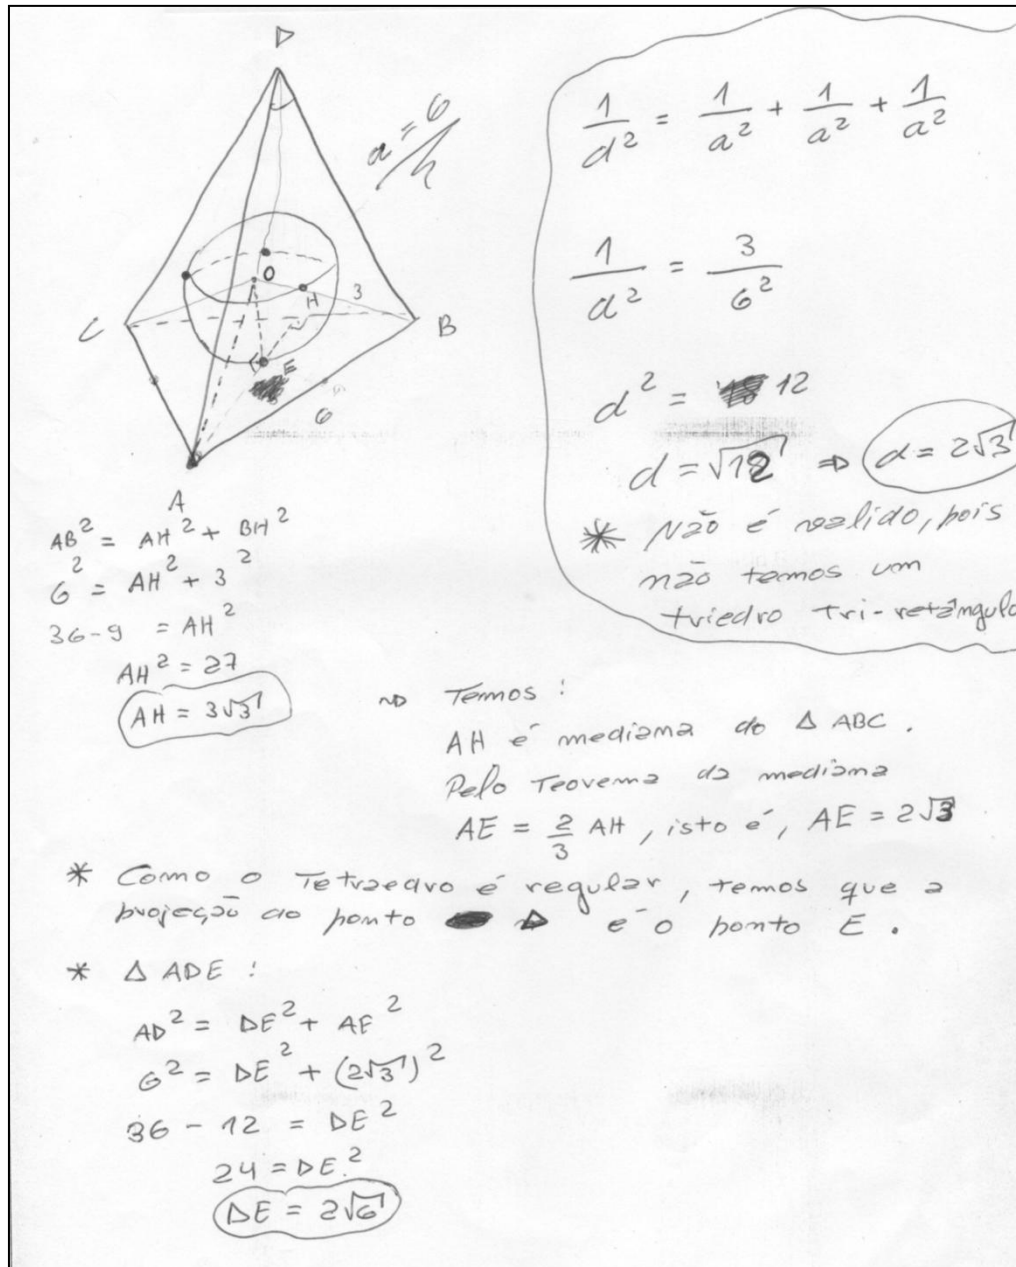 D
a = 6
h
O
H
3
C
B
E
6
A
1/d² = 1/a² + 1/a² + 1/a²
1/d² = 3/6²
d² = 12
d = √12 ⇒ d = 2√3
* Não é válido, pois
não temos um
triedro tri-retângulo
AB² = AH² + BH²
6² = AH² + 3²
36-9 = AH²
AH² = 27
AH = 3√3
⇒ Temos:
AH é mediana do Δ ABC.
Pelo Teorema da mediana
AE = 2/3 AH, isto é, AE = 2√3
* Como o Tetraedro é regular, temos que a
projeção do ponto D é o ponto E.
* Δ ADE:
AD² = DE² + AE²
6² = DE² + (2√3)²
36 - 12 = DE²
24 = DE²
DE = 2√6